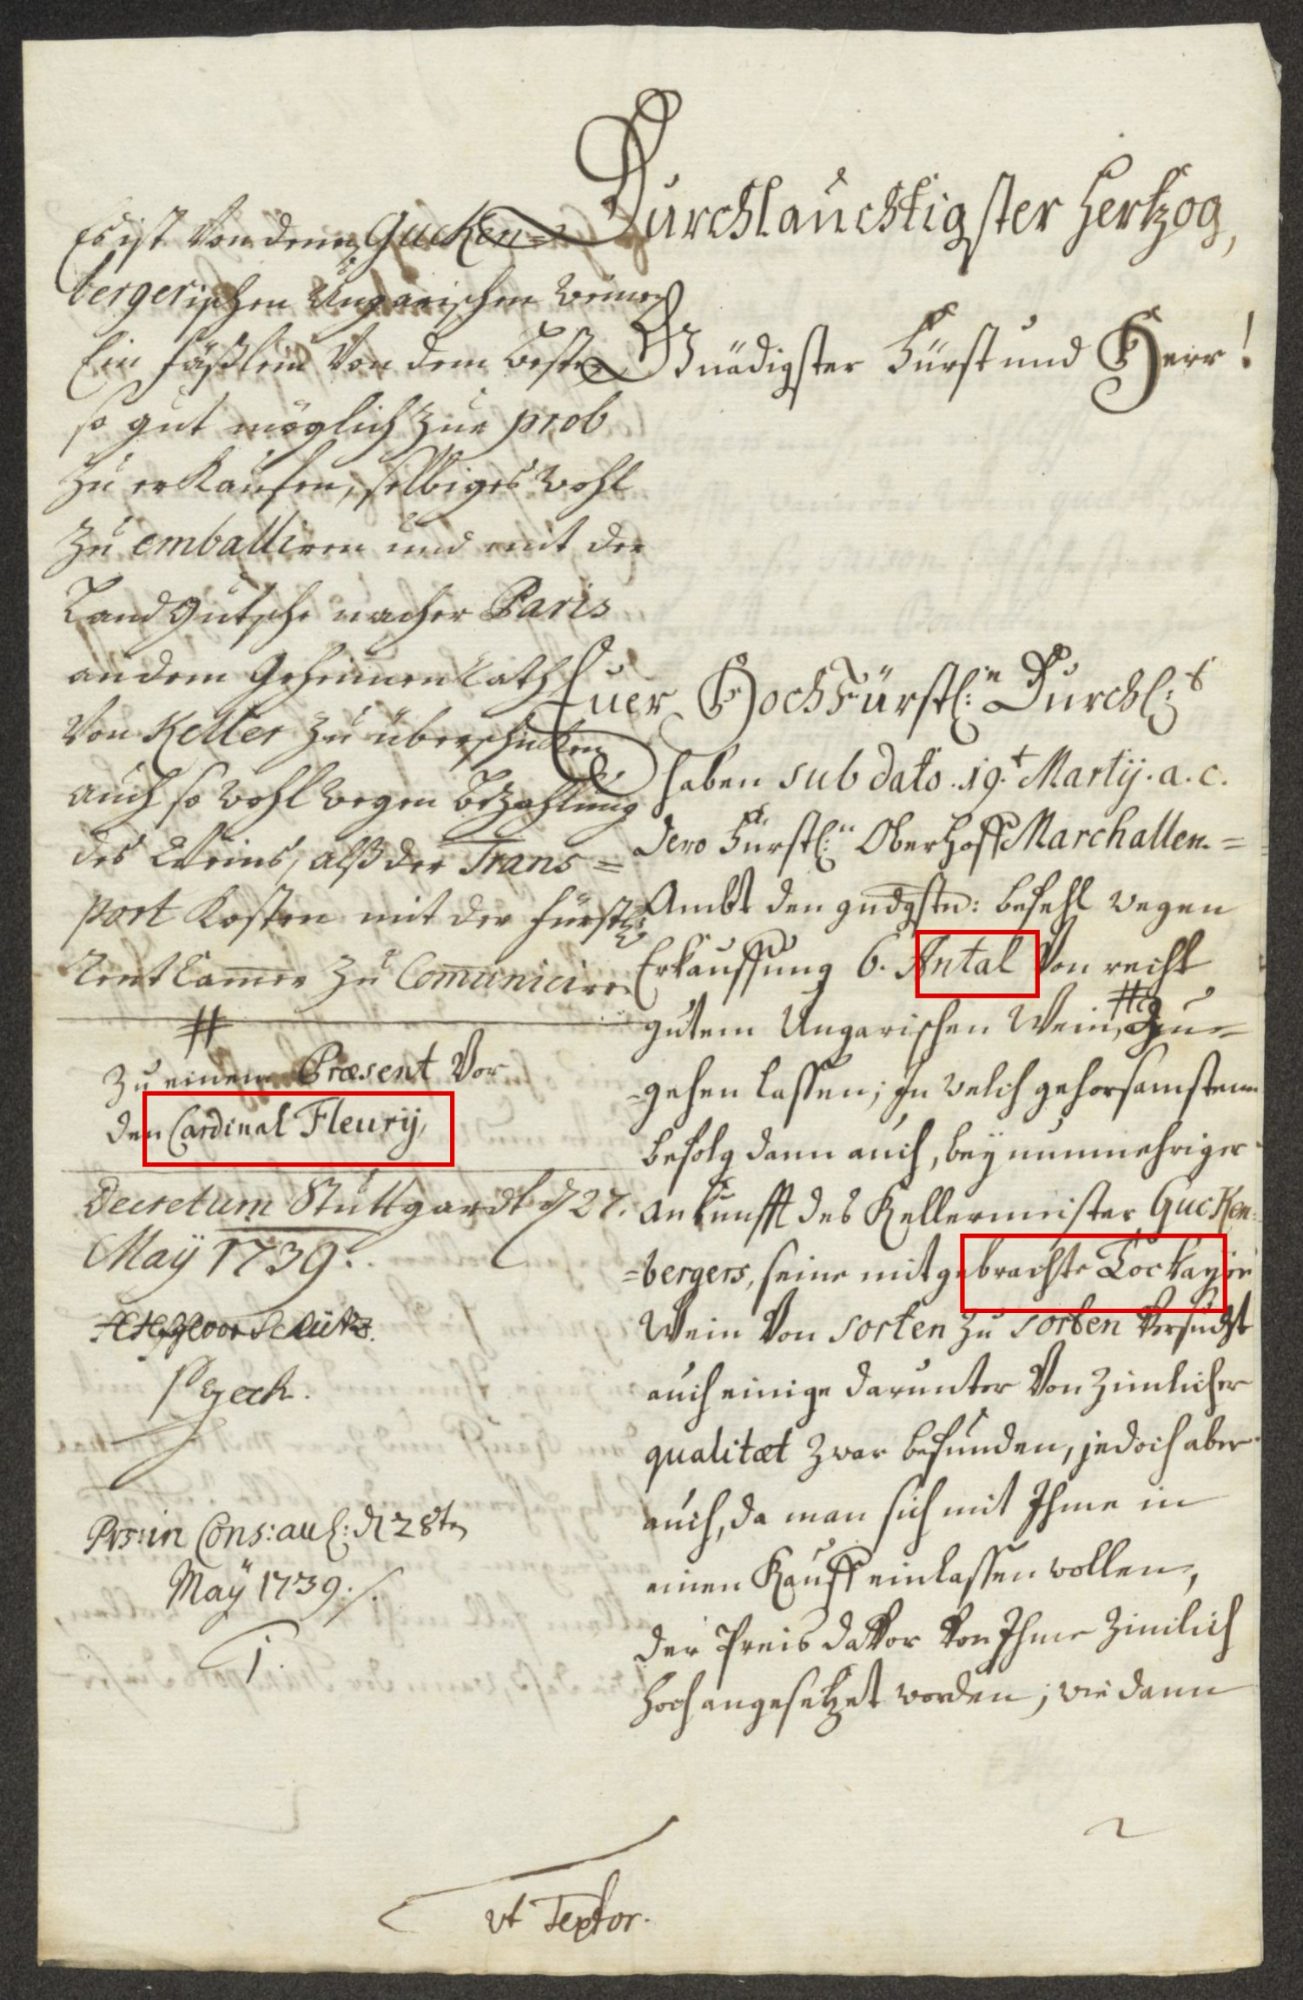 Durchlauchtigster Hertzog,
Gnädigster Fürst und Herr!
Euer HochFürstl:n Durchl:t
haben sub dato .19.t Martij. a. c.
Dero Fürstl:n OberhoffMarchallen=
Ambt den gndgstn: befehl wegen
Erkauffung 6. Antal Von recht
gutem Ungarischen Wein, # Zu=
=gehen lassen; In welch gehorsamstem
befolg dann auch, bey nunmehriger
ankunfft des Kellermeister Gucken=
=bergers, seine mitgebrachte Tockayer
Wein Von sorten zu sorten Versucht
auch einige darunter Von zimlicher
qualitæt zwar befunden, jedoch aber
auch, da man sich mit Ihme in
einen Kauff einlassen wollen,
der Preis davor von Ihme zimlich
hoch angesetzet worden; wie dann
Es ist Von denen Gucken=
bergerischen Ungarischen weinen
Ein fäßlein Von dem besten
so gut möglich zur prob
zu erkaufen, selbiges wohl
zu emballiren und mit der
Landgutsche nacher Paris
an dem Geheimen Rath
Von Keller zu überschicken
auch so wohl wegen Bezahlung
des Weins, alß der Trans=
port Kosten mit der fürstl:
Rent Cammer zu Com̅uniciren
#
Zu einem Præsent Vor
den Cardinal Fleurij,
Decretum Stuttgardt d 27.
Maÿ 1739.
Pzech.
Prs: in Cons: aul: d 28tn
Maÿ 1739./.
1.
vt Textor.